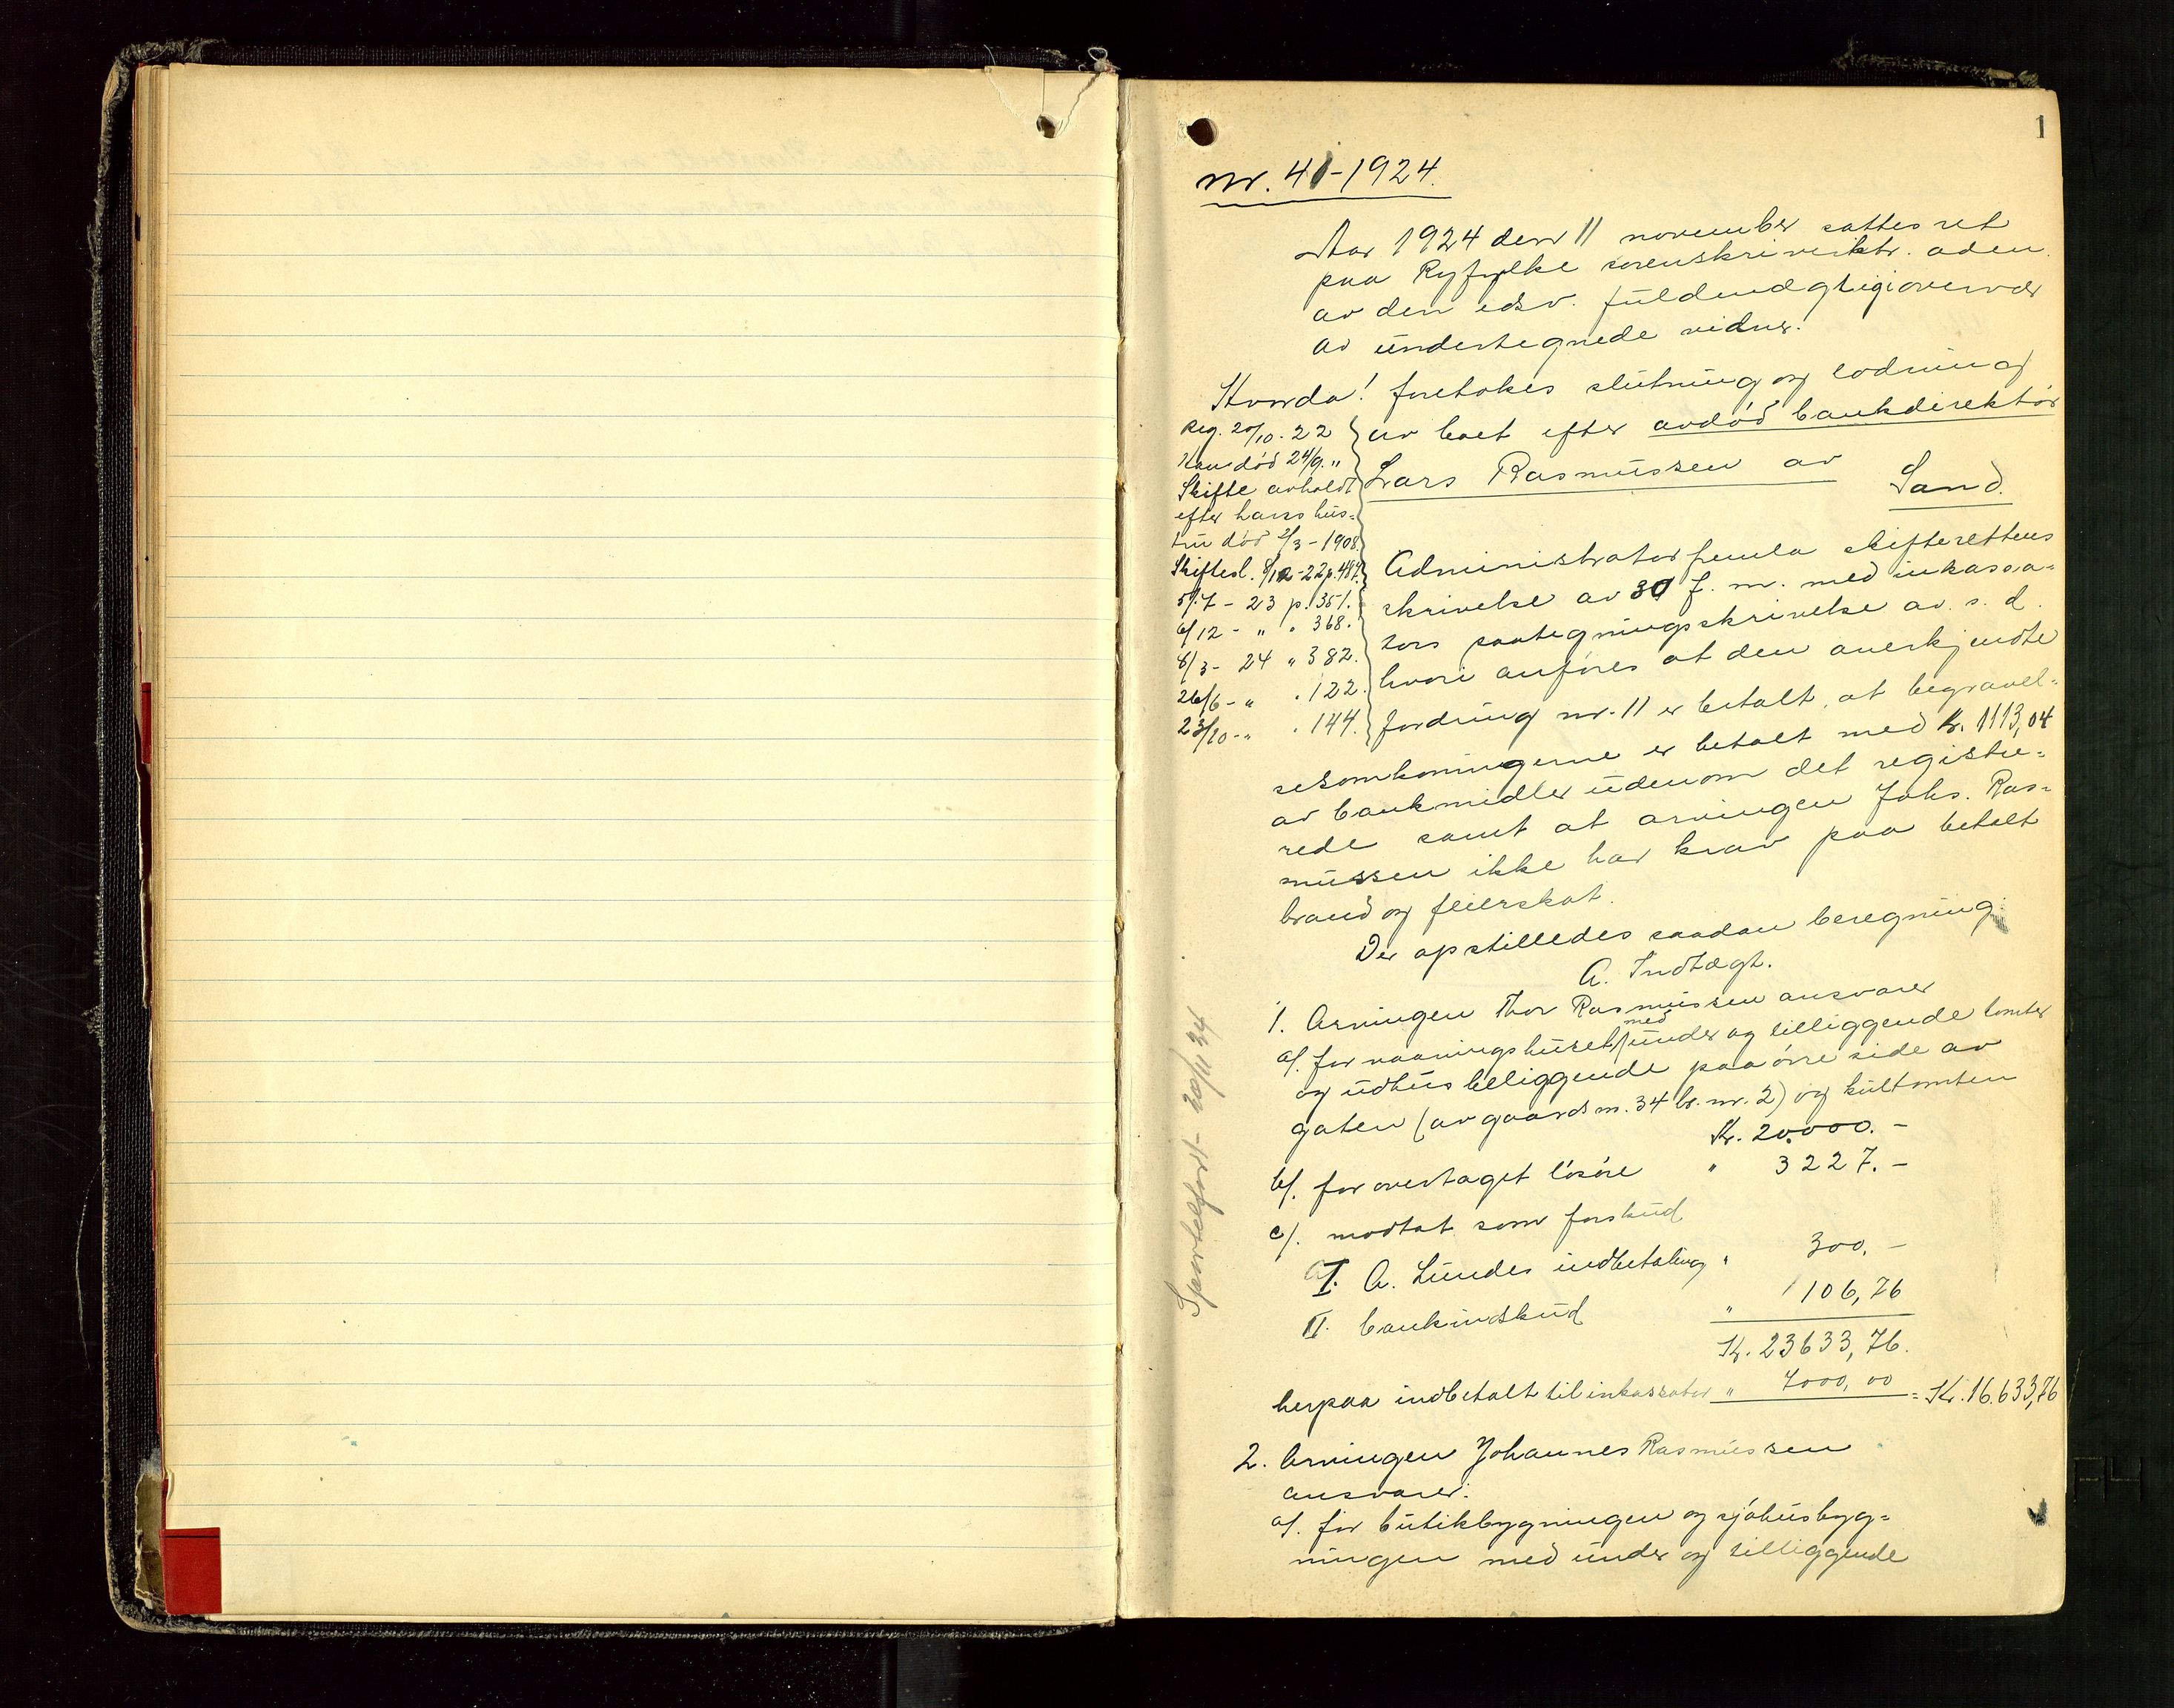 1
nr. 41-1924.
Aar 1924 den 11 november sattes ret
paa Ryfylke sorenskriverktr. aden.
av den edsv. fuldmægtig i overvær
av undertegnede vidner.
Hvorda! foretokes slutning og lodning
av boet efter avdød bankdirektør
Lars Rasmussen av
Sand.
Reg. 20/10. 22
Han død 24/9. "
Skifte avholdt
efter hans hus-
tru død 2/3-1908.
Skiftesl. 8/12-22 p. 487.
5/7 - 23 p. 351.
6/12 - " " 368.
8/3 - 24 " 382.
26/6 - " " 122.
23/10 - " " 144.
Administrator fremla skifterettens
skrivelse av 30 f. m. med inkassa-
tors paategningsskrivelse av s. d.
hvori anføres at den anerkjendte
fordring nr. 11 er betalt, at begravel-
sesomkoningerne er betalt med kr. 1113,04
av bankmidler udenom det registre-
rede samt at arvingen Johs. Ras-
mussen ikke har krav paa betalt
brand og feierskat.
Der opstilledes saadan beregning:
A. Indtægt.
1. Arvingen Thor Rasmussen ansvarer
a/. for vaaningshuset med under og tilliggende tomter
og udhus beliggende paa øvre side av
gaten (av gaards nr. 34 br. nr. 2) og hultomten
Kr. 20.000. -
b/. for overtaget løsøre " 3227. -
c/. mottat som forskud
I. A. Lundes indbetaling " 300, -
II. bankindskud " 106,76
Kr. 23633,76.
herpaa indbetalt til inkassator " 7000,00 = Kr. 16.633,76
2. Arvingen Johannes Rasmussen
ansvarer:
a/. for butikbygningen og sjøhusbyg-
ningen med under og tilliggende
Sportelført 20/11 34